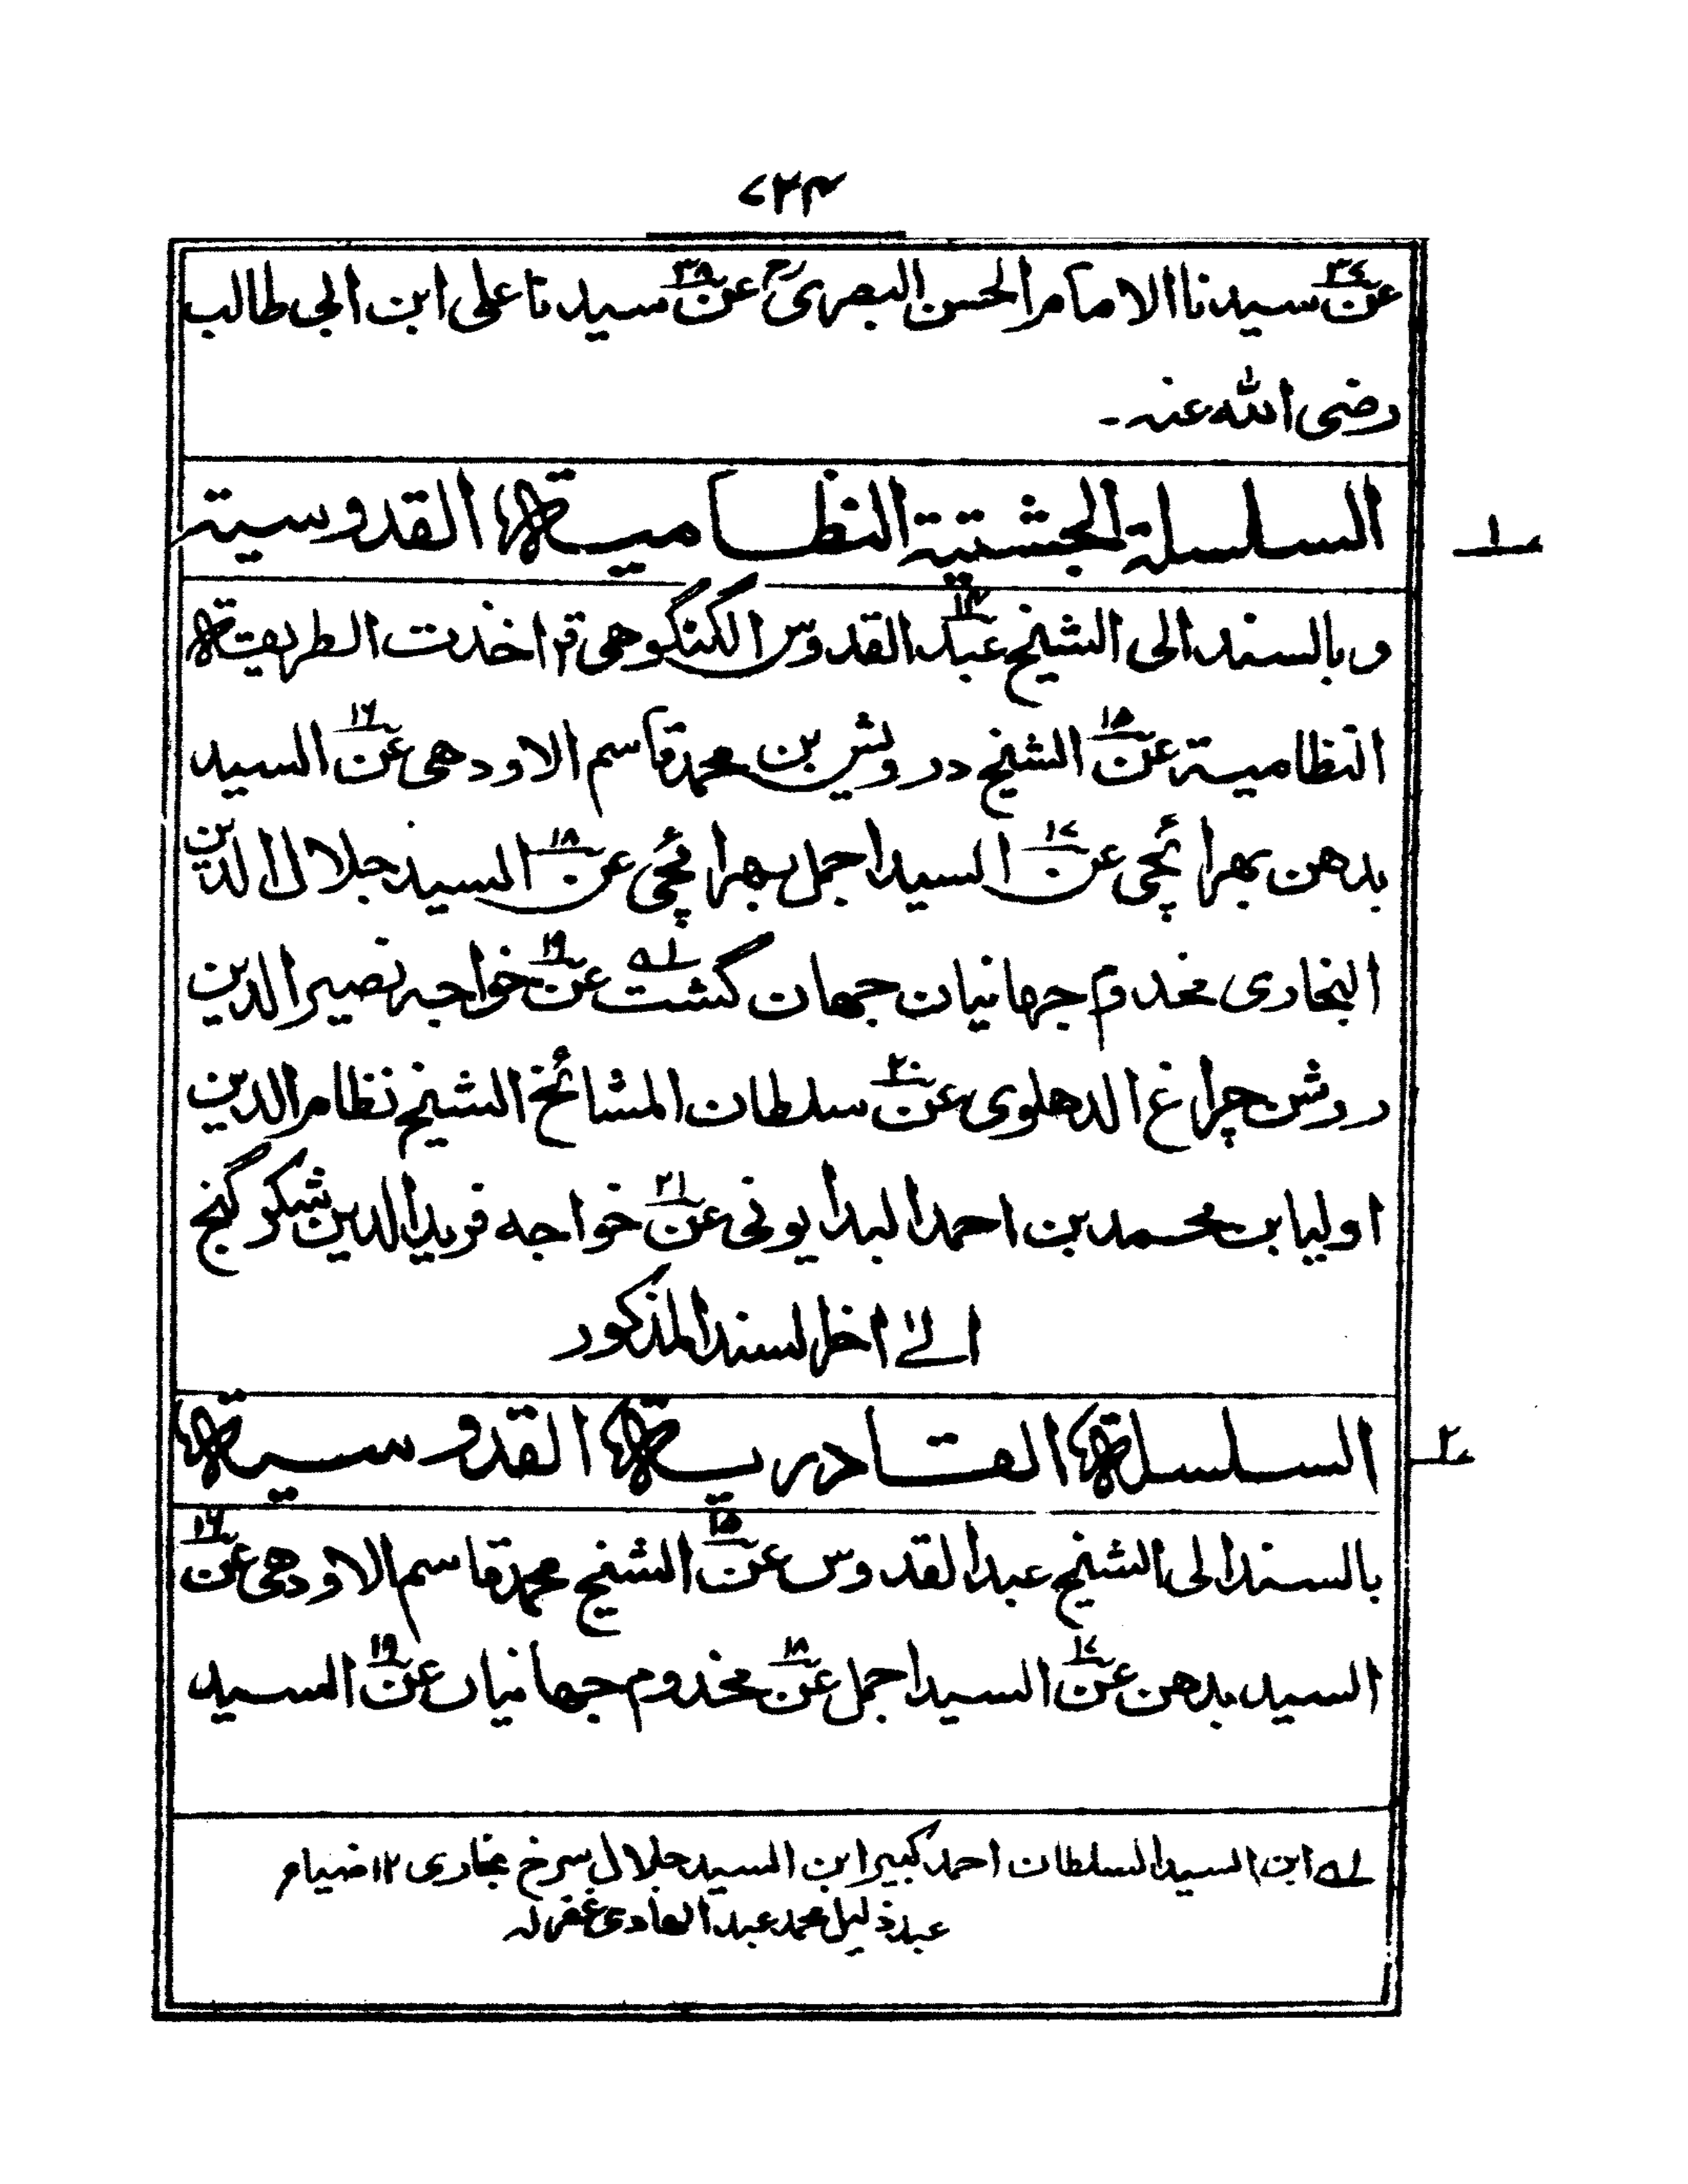 ۷۲۴
عن۳۷ سیدنا الامام الحسن البصریؒ عن۳۸ سیدنا علی ابن ابی طالب
رضی اللہ عنہ۔
السلسلۃ الچشتیۃ النظامیۃ القدوسیۃ
۱
وبالسند الی الشیخ عبد۱۴ القدوس الگنگوھی قد اخذت الطریقۃ
النظامیۃ عن۱۵ الشیخ درویش بن محمد قاسم الاودھی عن۱۶ السید
بدھن بھرائچی عن۱۷ السید اجمل بھرائچی عن۱۸ السید جلال الدین
البخاری مخدوم جہانیان جھان گشت لہ عن۱۹ خواجہ نصیر الدین
روشن چراغ الدھلوی عن۲۰ سلطان المشائخ الشیخ نظام الدین
اولیا بن محمد بن احمد البدایونی عن۲۱ خواجہ فرید الدین شکر گنج
الیٰ اٰخر السند المذکور
السلسلۃ القادریۃ القدوسیۃ
۲
بالسند الی الشیخ عبد القدوس عن۱۵ الشیخ محمد قاسم الاودھی عن۱۶
السید بدھن عن۱۷ السید اجمل عن۱۸ مخدوم جھانیاں عن۱۹ السید
لہ ابن السید السلطان احمد کبیر ابن السید جلال سرخ بخاری ۱۲ ضیاء
عبد ذلیل محمد عبد الھادی غفرلہ